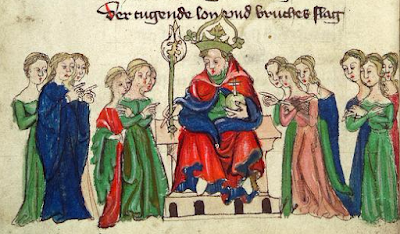 Der tugende lon vnd bruches slag